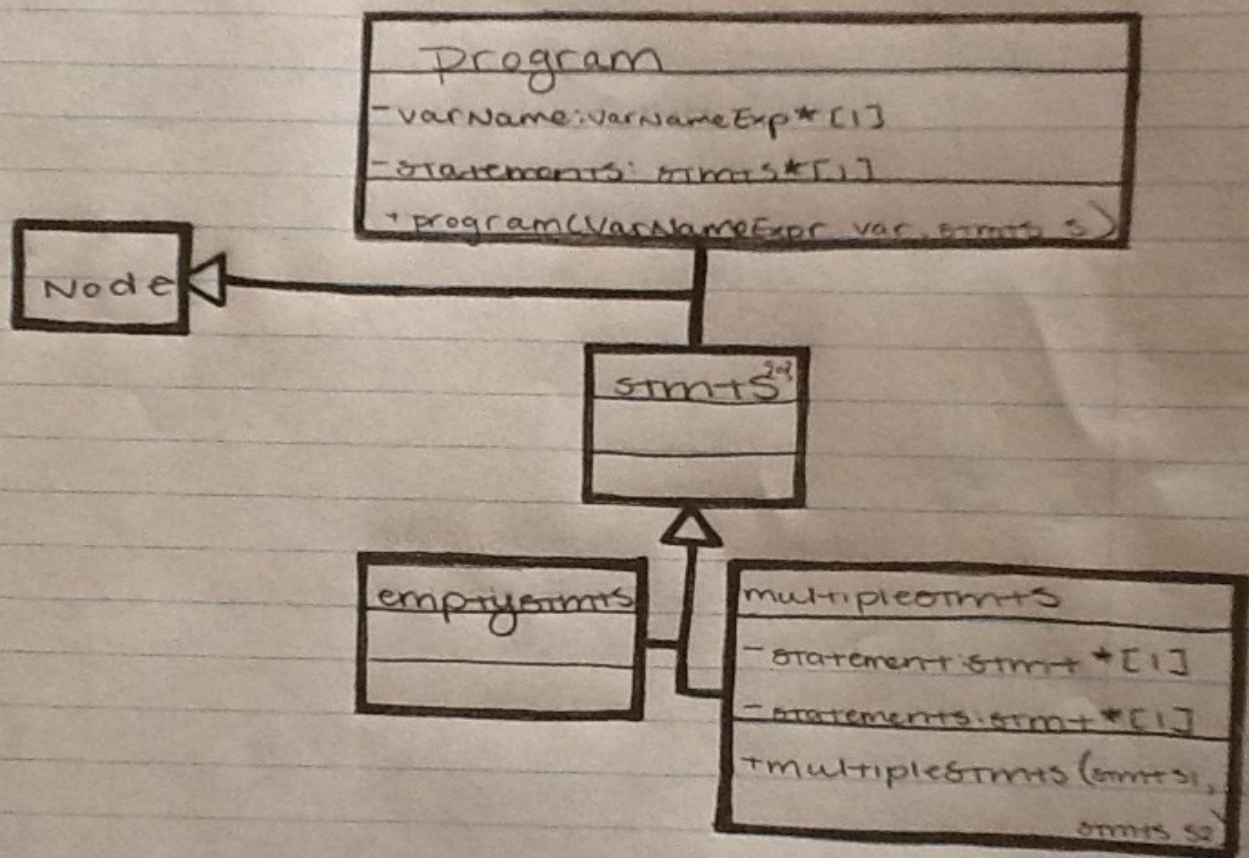 Program
- varName: varNameExp* [1]
- statements: stmts* [1]
+ program(VarNameExpr var, stmts s)
Node
stmts
emptystmts
multiplestmts
- statement: stmt * [1]
- statements: stmt * [1]
+ multiplestmts (stmt s1,
stmts s2)